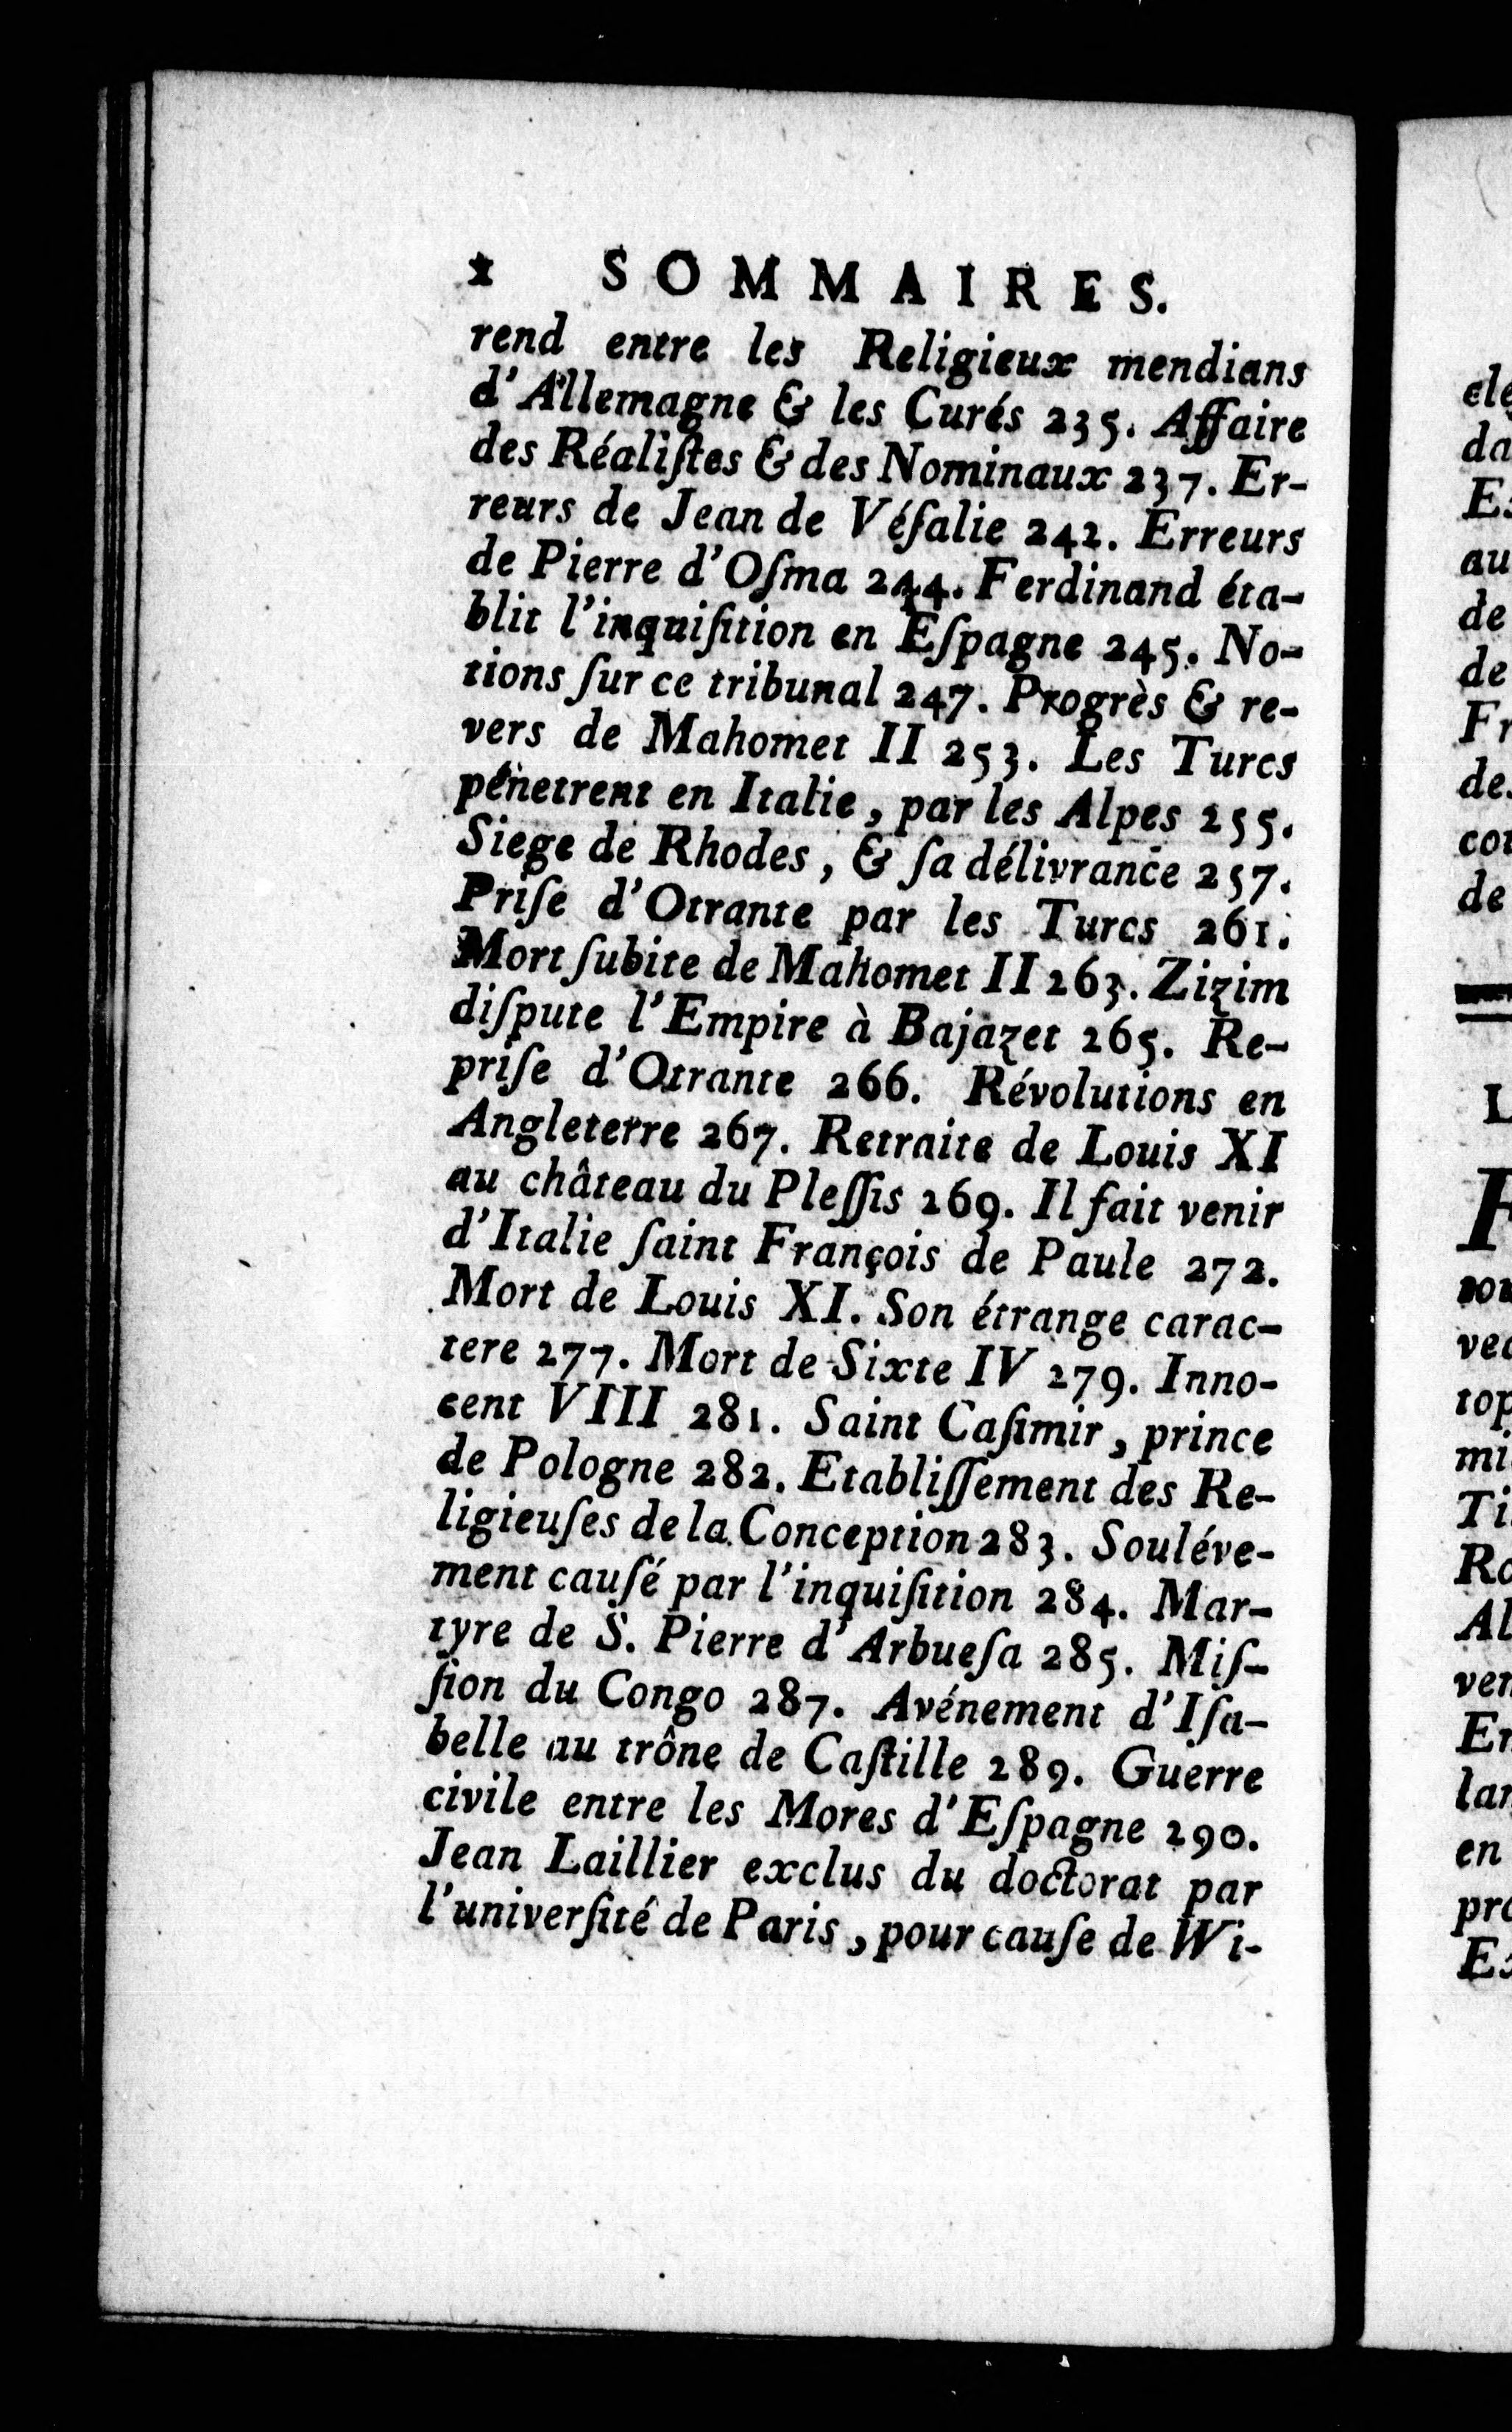 x SOMMAIRES.
rend entre les Religieux mendians
d'Allemagne & les Curés 235. Affaire
des Réaliſtes & des Nominaux 237. Er-
reurs de Jean de Véſalie 242. Erreurs
de Pierre d'Oſma 244. Ferdinand éta-
blit l'inquiſition en Eſpagne 245. No-
tions ſur ce tribunal 247. Progrès & re-
vers de Mahomet II 253. Les Turcs
pénetrent en Italie, par les Alpes 255.
Siege de Rhodes, & ſa délivrance 257.
Priſe d'Otrante par les Turcs 261.
Mort ſubite de Mahomet II 263. Zizim
diſpute l'Empire à Bajazet 265. Re-
priſe d'Otrante 266. Révolutions en
Angleterre 267. Retraite de Louis XI
au château du Pleſſis 269. Il fait venir
d'Italie ſaint François de Paule 272.
Mort de Louis XI. Son étrange carac-
tere 277. Mort de Sixte IV 279. Inno-
cent VIII 281. Saint Caſimir, prince
de Pologne 282. Etabliſſement des Re-
ligieuſes de la Conception 283. Souléve-
ment cauſé par l'inquiſition 284. Mar-
tyre de S. Pierre d'Arbueſa 285. Miſ-
ſion du Congo 287. Avénement d'Iſa-
belle au trône de Caſtille 289. Guerre
civile entre les Mores d'Eſpagne 290.
Jean Laillier exclus du doctorat par
l'univerſité de Paris, pour cauſe de Wi-